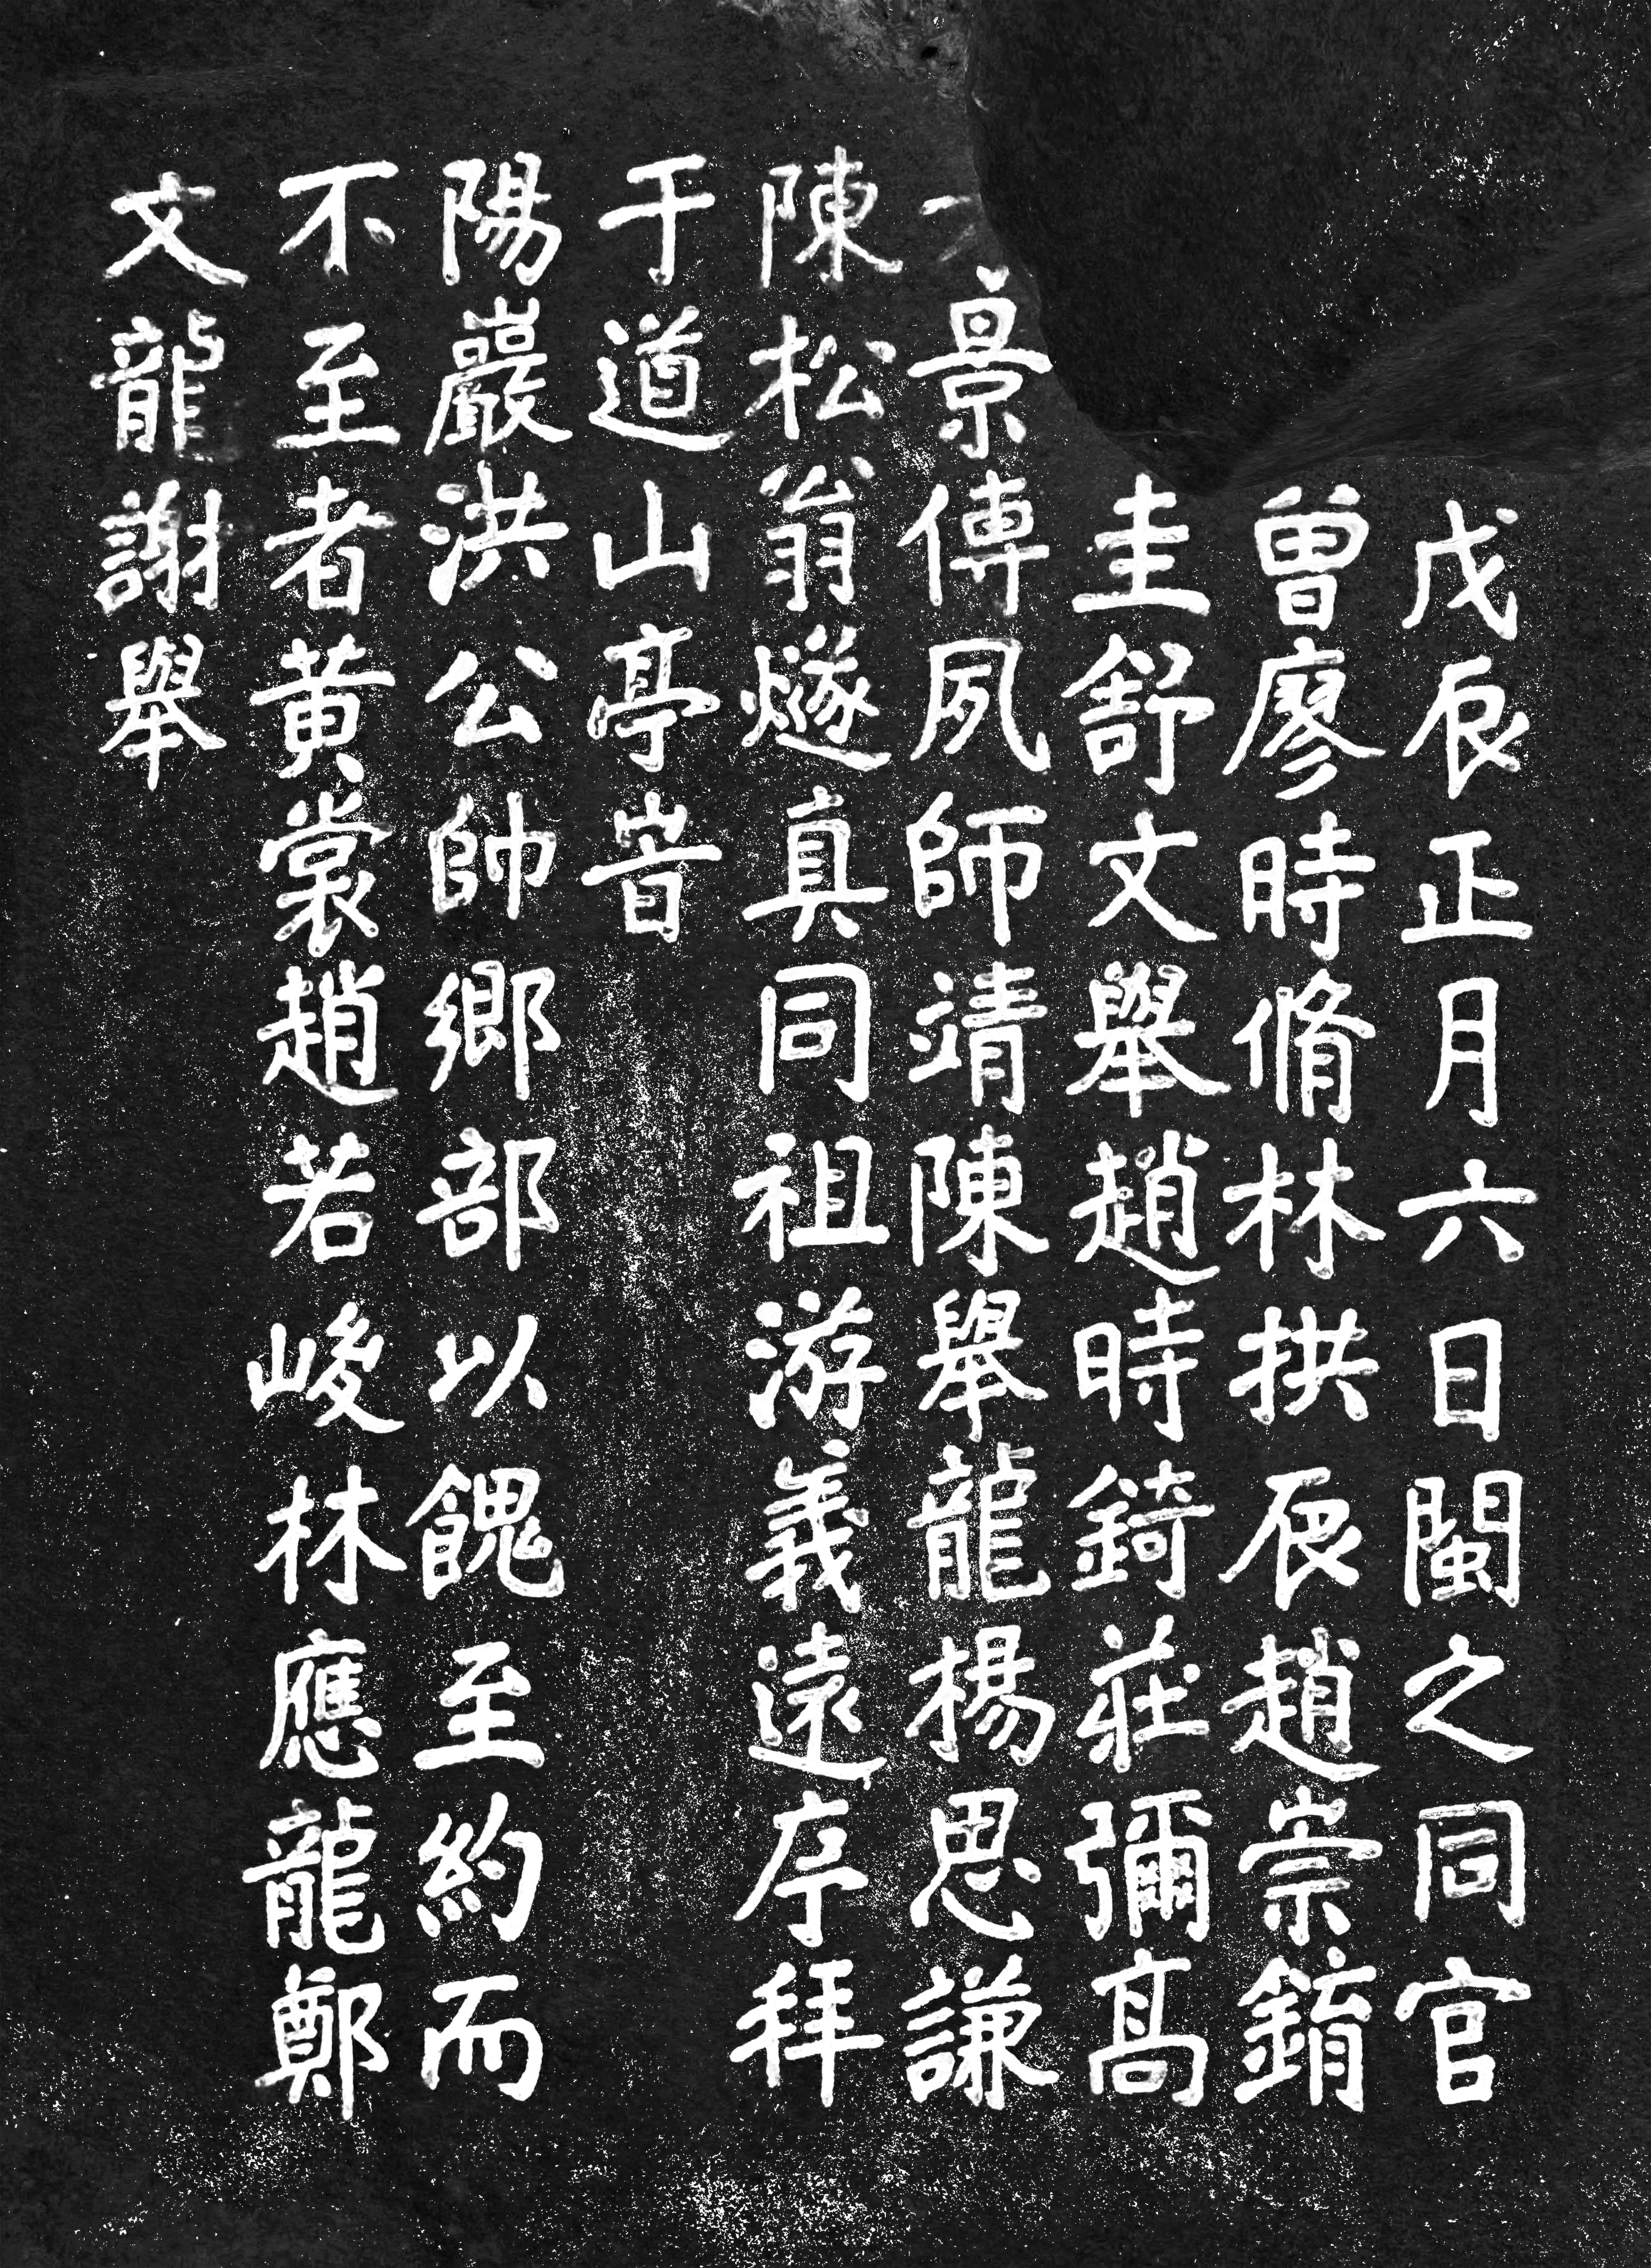 戊辰正月六日閩之同官
曾廖時脩林拱辰趙崇錥
圭舒文舉趙時錡莊彌高
景傅夙師靖陳舉龍楊思謙
陳松翁燧真同祖游義遠序拜
于道山亭旹
陽巖洪公帥鄉部以餽至約而
不至者黃裳趙若峻林應龍鄭
文龍謝舉